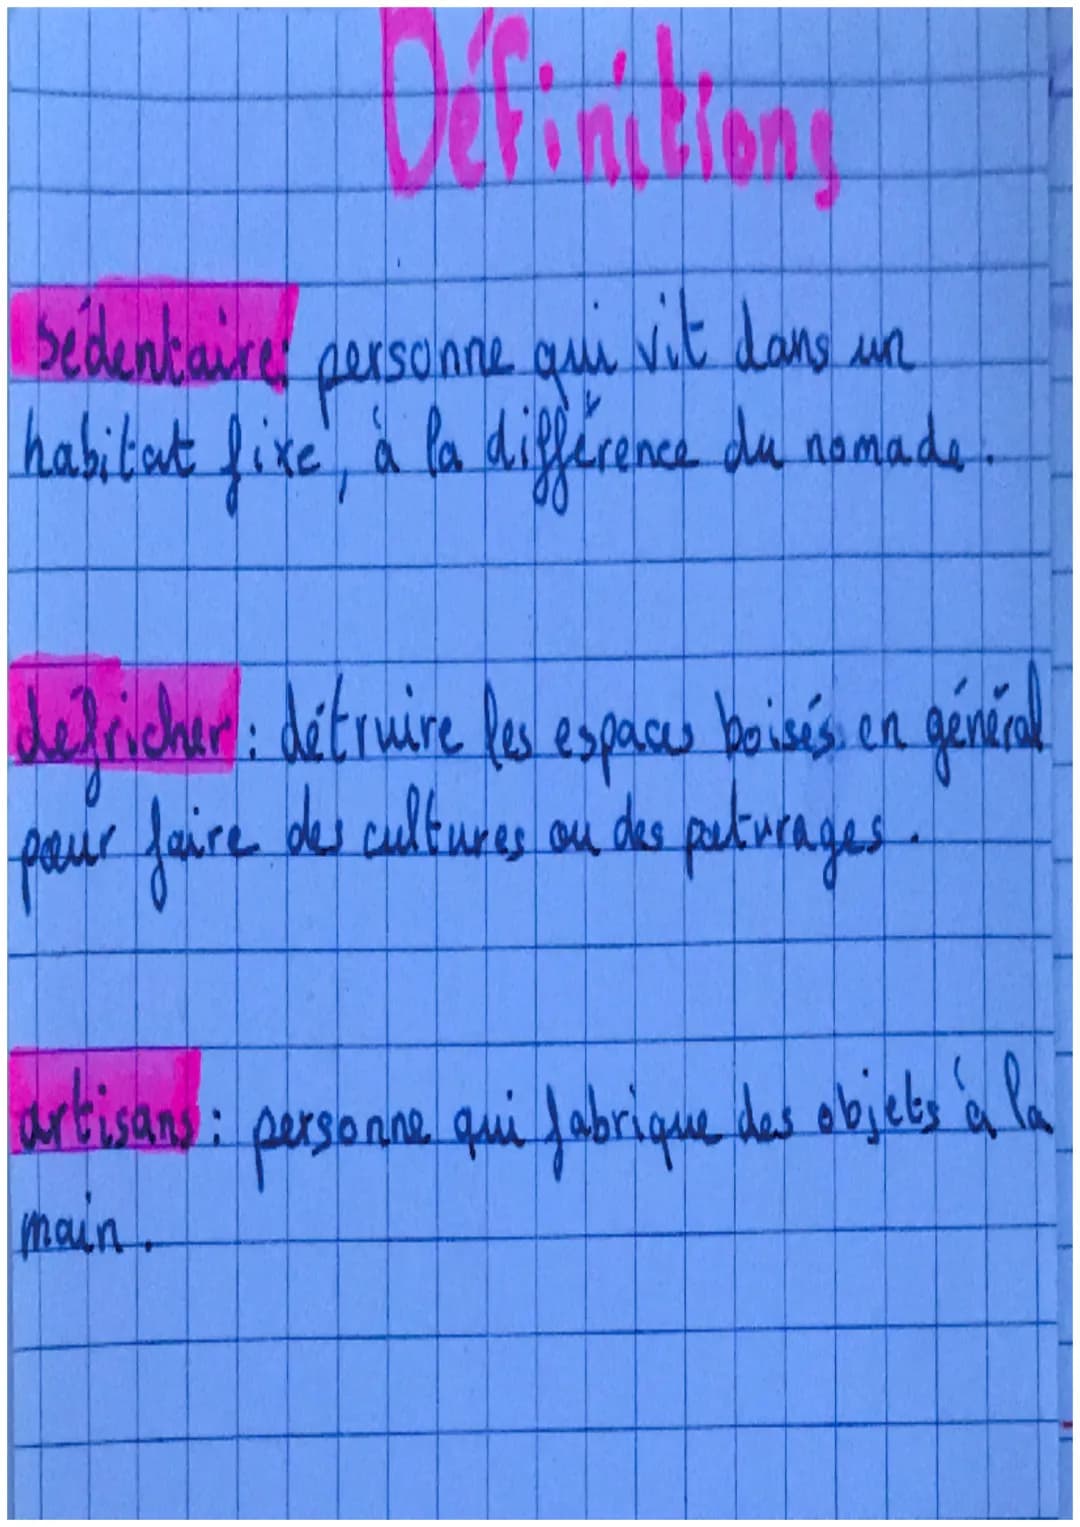 Définitions
sédentaire: personne qui vit dans un
habitat fixe, à la différence du nomade.
défricher : détruire les espaces boisés en général
pour faire des cultures ou des paturages.
artisans : personne qui fabrique des objets à la
main.